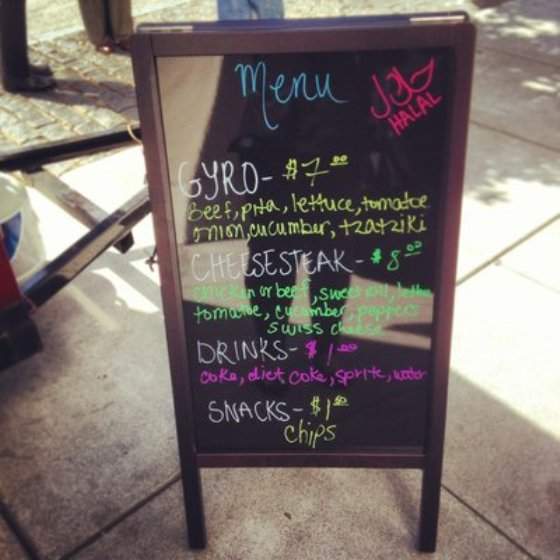 Menu
HALAL
GYRO- $7.00
Beef, pita, lettuce, tomatoe
onion, cucumber, tzatziki
CHEESESTEAK- $8.00
chicken or beef, sweet
tomatoe, cucumber, peppers
swiss cheese
DRINKS- $1.00
coke, diet coke, sprite, water
SNACKS- $1.50
chips